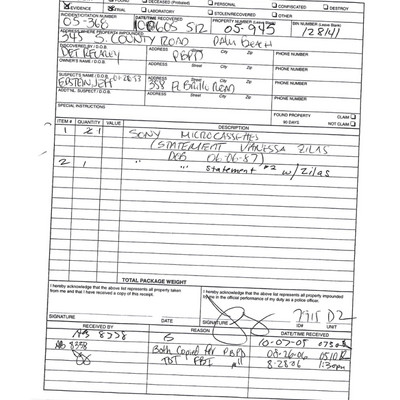 FOUND DECEASED (Printed) IMPOUNDED DESTROY
EVIDENCE TRIAL LABORATORY STOLEN/RECOVERED OTHER
INCIDENT/CITATION NUMBER DATE/TIME RECOVERED PROPERTY NUMBER (Leave Blank) BIN NUMBER (Leave Blank)
05-368 05-945 128141
ADDRESS WHERE PROPERTY IMPOUNDED
345 S. COUNTY ROAD PALM BEACH
DISCOVERED BY / D.O.B. ADDRESS Street City Zip PHONE NUMBER
PBPD
OWNER'S NAME / D.O.B. ADDRESS Street City Zip PHONE NUMBER
SUSPECT'S NAME / D.O.B. ADDRESS Street City Zip PHONE NUMBER
EPSTEIN, JEFF 358 El Brillo
ADDT'NL SUSPECT / D.O.B. ADDRESS Street City Zip PHONE NUMBER
SPECIAL INSTRUCTIONS FOUND PROPERTY CLAIM
90 DAYS NO CLAIM
ITEM # QUANTITY VALUE DESCRIPTION
1 SONY MICROCASSETTES
(STATEMENT VANESSA ZILAS
DOB 06-06-87)
2 1 " " Statement #2 w/ Zilas
TOTAL PACKAGE WEIGHT
I hereby acknowledge that the above list represents all property taken from me and that I have received a copy of this receipt.
I hereby acknowledge that the above list represents all property impounded by me in the official performance of my duty as a police officer.
7915 D2
SIGNATURE DATE SIGNATURE ID# UNIT
RECEIVED BY REASON DATE/TIME RECEIVED
8338 10-07-05
8338 Both Copied for PBPD 08-26-06
TOT FBI 8-28-06 1:30pm